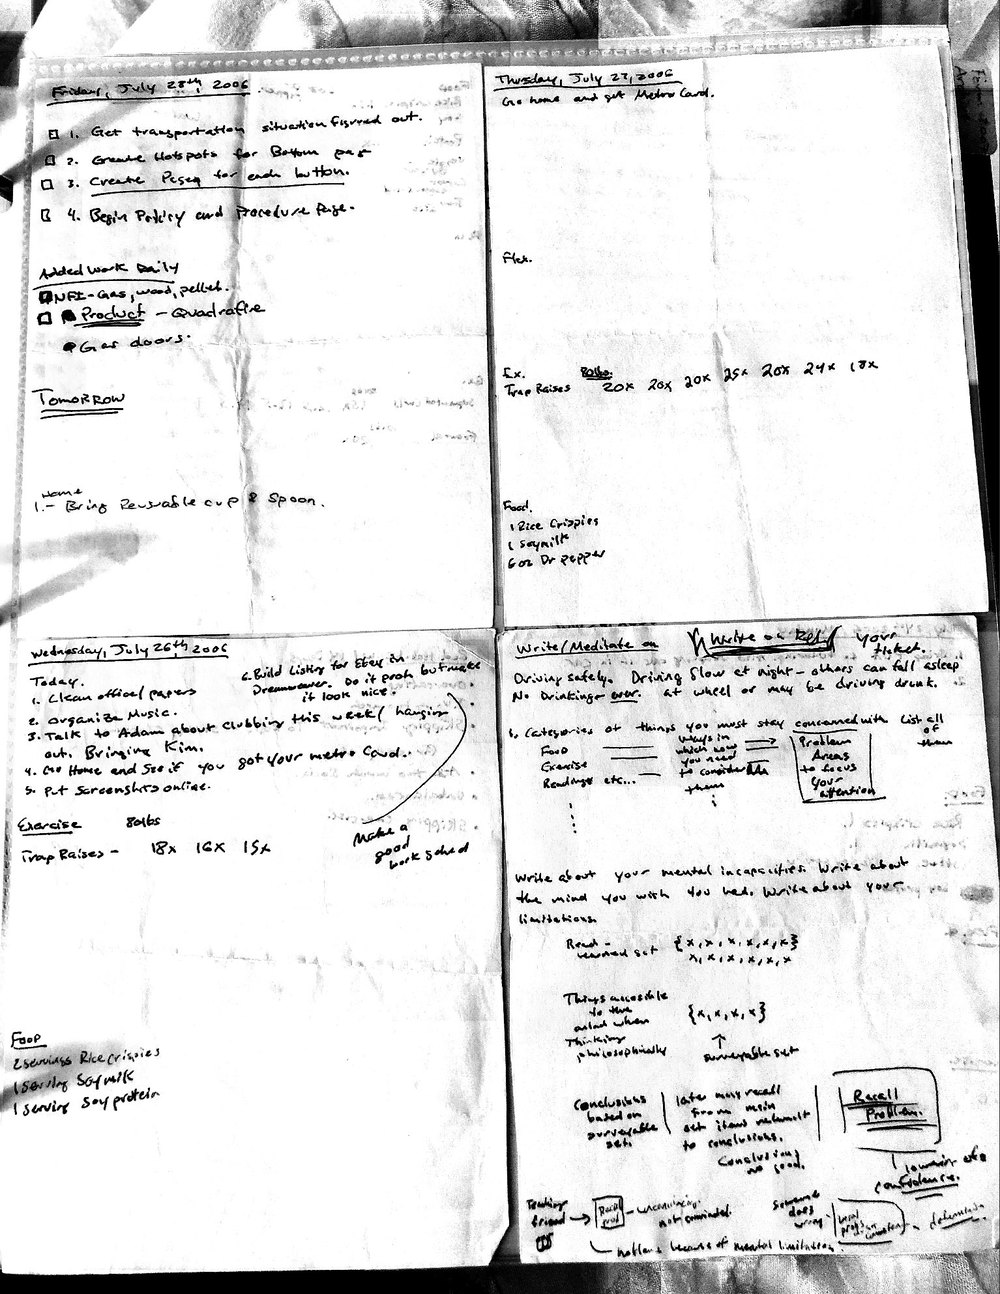 Friday, July 28th, 2006
1. Get transportation situation figured out.
2. Create Hotspots for Bottom
3. Create for each button.
4. Begin Policy and Procedure Page.
Added Work Daily
NFI-Gas, wood, pellet.
Product - Quadrafire
Gas doors.
Tomorrow
Home
1.- Bring Reusable cup & Spoon.
Thursday, July 27, 2006
Go home and get MetroCard.
Flex.
Ex. 80lbs.
Trap Raises 20x 20x 20x 25x 20x 24x 18x
Food.
1 Rice Crispies
1 Soymilk
6oz Dr pepper
Wednesday, July 26th, 2006
Today.
1. Clean office/papers
2. Organize Music.
3. Talk to Adam about clubbing this week/hanging
out. Bringing Kim.
4. Go Home and See if you got your metro Card.
5. Put Screenshots online.
6. Build Listing for Ebay in
Dreamweaver. Do it but make
it look nice.
Make a
good
Exercise 80lbs
Trap Raises - 18x 16x 15x
Food
2 servings Rice Crispies
1 Serving Soymilk
1 serving Soy protein
Write/Meditate on Write on your
ticket.
Driving safely. Driving Slow at night - others can fall asleep
No Drinking- ever. at wheel or may be driving drunk.
Categories of things you must stay concerned with List all
of
them
Food
Exercise
Readings etc...
Ways in
which
you need
to consider
them
Problem
Areas
to focus
your
attention
Write about your mental incapacities. Write about
the mind you wish you had. Write about your
limitations.
Read -
learned set {x, x, x, x, x, x}
x, x, x, x, x, x
Things accessible
to the
mind when
Thinking
philosophically
{x, x, x, x}
surveyable set
Conclusions
based on
surveyable
set.
later may recall
from main
set items relevant
to conclusions.
Conclusions
no good.
Recall
Problem.
confidence.
friend
unconvincing.
not convinced.
because of mental limitation.
Someone
does
wrong